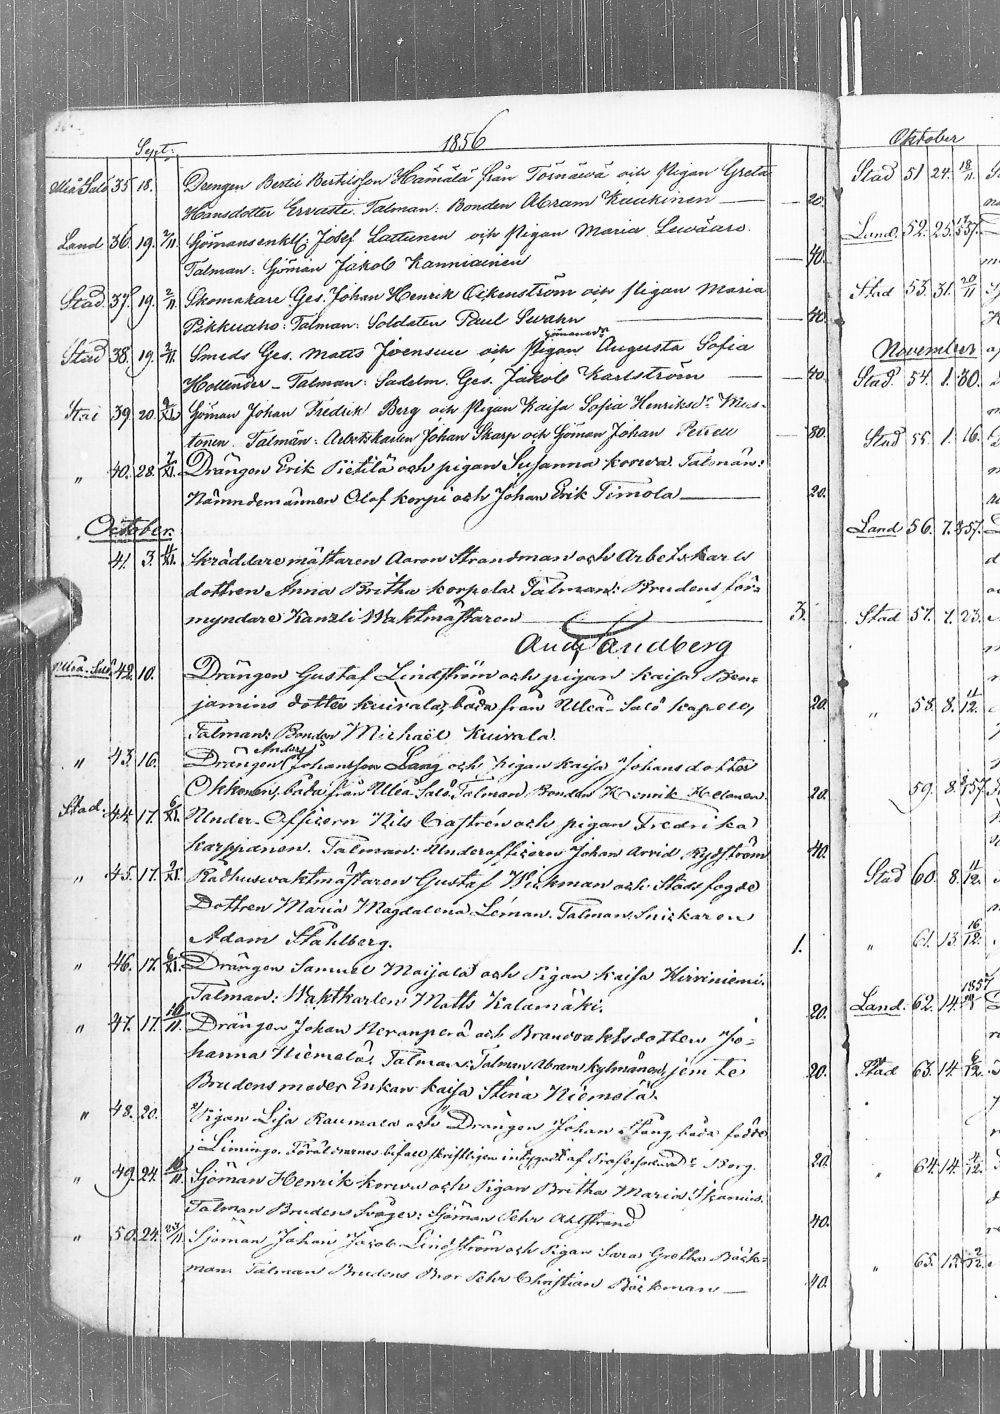 1856
Sept:
Uleå Salo 35 18. Drengen Bertil Bertilsson Hämälä från Törnäwä och Pigan Greta
Hansdotter Ervasti. Talman: Bonden Abram Kaukinen — 20.
Land 36. 19. 2/11. Sjömansenkl: Josef Lattunen och Pigan Maria Lewäaro.
Talman: Sjöman Jakob Kanniainen — 40.
Stad 37. 19. 2/11 Skomakare Ges. Johan Henrik Eikenström och Pigan Maria
Pikkuaho: Talman: Soldaten Paul Swahn — 40.
Stad 38. 19. 2/11. Smeds Ges. Matts Joensuu och Pigan Sjömansdr Augusta Sofia
Hollender — Talman: Sadelm. Ges. Jakob Karlström — 40.
Stad 39. 20. 9/XI. Sjöman Johan Fredrik Berg och Pigan Kaisa Sofia Henriksdr Mus-
tonen. Talmän: Arbetskarlen Johan Skarp och Sjöman Johan Petrell — 80.
" 40. 28. 7/XI. Drängen Erik Pietilä och pigan Susanna Korwa. Talmän:
Nämndemännen Olof Korpi och Johan Erik Timola — 20.
October.
41. 3. 4/XI. Skräddaremästaren Aaron Strandman och Arbetskarls
dottren Anna Britha Korpela. Talman: Brudens för-
myndare Kanzli Waktmästaren — 3.
And. Sandberg
Uleå-Salo 42. 10. Drängen Gustaf Lindström och pigan Kaisa Ben-
jamins dotter Kuivala, båda från Uleå-Salo kapell, 20.
Talman: Bonden Michael Kuivala.
" 43. 16. Drängen Anders Johansson Lang och Pigan Kaisa Johansdotter
Okkonen, båda från Uleå Salo. Talman Bonden Henrik Helanen. 20.
Stad. 44. 17. 6/XI. Under-Officern Nils Castrén och pigan Fredrika
Karppanen. Talman: Underofficern Johan Arvid Rydström 40.
" 45. 17. 2/XI. Rådhuswaktmästaren Gustaf Wickman och Stads fogde
Dottren Maria Magdalena Léman. Talman: Snickaren
Adam Ståhlberg. 1.
" 46. 17. 6/XI. Drängen Samuel Maijala och Pigan Kaisa Hirviniemi.
Talman: Waktkarlen Matts Kalamäki. 20.
" 47. 17. 10/11. Drängen Johan Hevanperä och Brandvaktsdottern Jo-
hanna Niemelä. Talman: Talman Abram Kylmänen, jemte 20.
Brudens moder Enkan Kaisa Stina Niemelä.
" 48. 20. Pigan Lisa Raumala och Drängen Johan Stång, båda födde
i Limingo. Föräldrarnes bifall skriftligen intygadt af Borg. 20.
" 49. 24. 10/11 Sjöman Henrik Korwa och Pigan Britha Maria Ikonius.
Talman Brudens Svåger: Sjöman Pehr Ahlstrand 40.
" 50. 24. Sjöman Johan Jacob Lindström och Pigan Sara Gretha Bäck-
man: Talman Brudens Bror Pehr Christian Bäckman — 40.
Oktober
Stad 51 24. 18/11
Land. 52. 25.
Stad 53. 31. 20/11
November
Stad. 54. 1. 30.
Stad 55. 1. 16.
Land 56. 7.
Stad 57. 7. 23.
" 58. 8. 11/12.
59. 8.
Stad 60. 8. 11/12.
" 61. 13. 16/12.
Land. 62. 14. 1857
Stad 63. 14. 6/12.
" 64. 14. 4/12.
" 65. 15. 2/12.